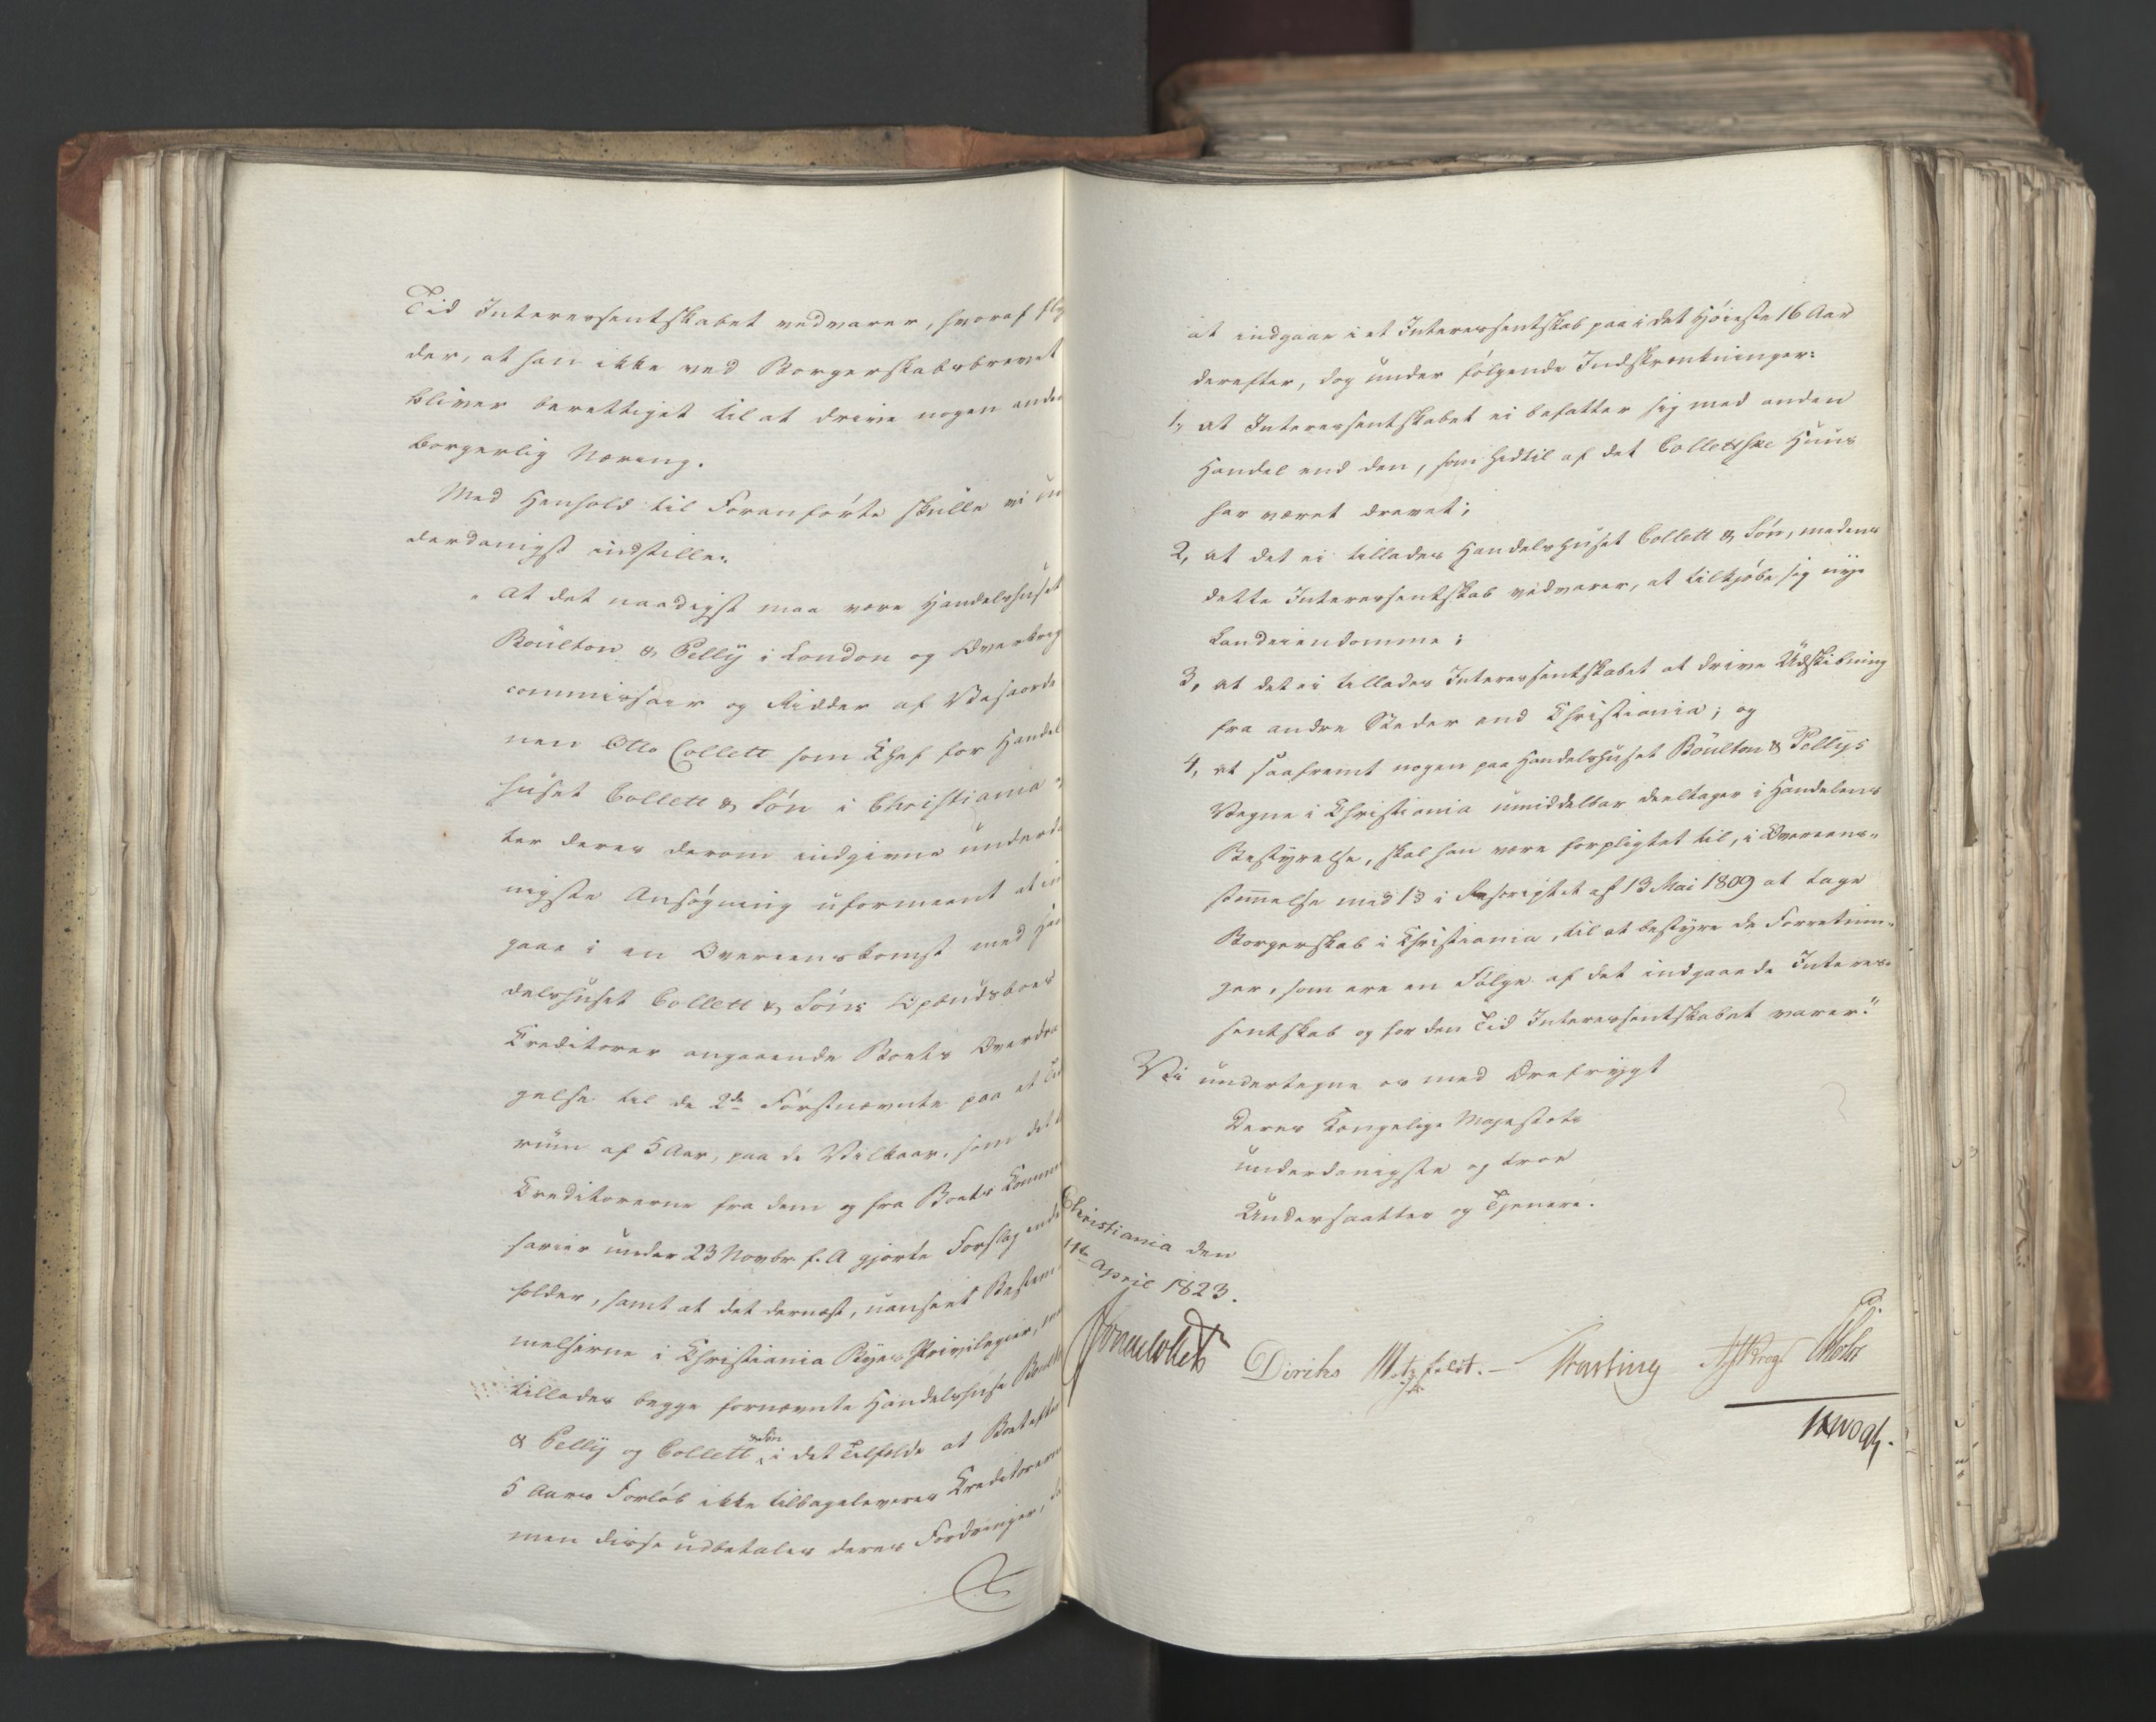 Tid Interessentskabet vedvarer, hvoraf fly
der, at han ikke ved Borgerskabsbrevet
bliver berettiget til at drive nogen anden
borgerlig Næring.
Med Henhold til Foranførte skulle vi un
derdanigst indstille:
"At det naadigst maa være Handelshuset
Boulton & Pelly i London og Overkrigs
commissair og Ridder af Vasaorde
nen Otto Collett som Chef for Handels
huset Collett & Søn i Christiania
ter deres derom indgivne underda
nigste Ansøgning uformeent at in
gaae i en Overeenskomst med Han
delshuset Collett & Søns Opbudsboes
Creditorer angaaende Boets Overdra
gelse til de 2de Førstnævnte paa et Tids
rum af 5 Aar, paa de Vilkaar, som det til
Creditorerne fra dem og fra Boets Commis
sarier under 23 Novbr. f. A gjorte Forslag inde
holder, samt at det dernæst, uanseet Bestem
melserne i Christiania Byes Privilegier, maa
tillades begge fornævnte Handelshuse Boulton
& Pelly og Collett & Søn, i det Tilfælde at Boet efter
5 Aars Forløb ikke tilbageleveres Creditorerne
men disse udbetales deres Fordringer,
at indgaae i et Interessentskab paa i det Høieste 16 Aar
derefter, dog under følgende Indskrænkninger:
1, at Interessentskabet ei befatter sig med anden
Handel end den, som hidtil af det Collettske Huus
har været drevet;
2, at det ei tillades Handelshuset Collett & Søn, medens
dette Interessentskab vedvarer, at tilkjøbe sig nye
Landeiendomme;
3, at det ei tillades Interessentskabet at drive Udskibning
fra andre Steder end Christiania; og
4, at saafremt nogen paa Handelshuset Boulton & Pellys
Vegne i Christiania umiddelbar deeltager i Handelens
Bestyrelse, skal han være forpligtet til, i Overeens-
stemmelse med 13 i Rescriptet af 13 Mai 1809 at tage
Borgerskab i Christiania, til at bestyre de Forretnin-
ger, som ere en Følge af det indgaaede Interes-
sentskab og for den Tid Interessentskabet varer."
Vi undertegne os med Ærefrygt
Deres Kongelige Majestæts
underdanigste og troe
Undersaatter og Tjenere.
Christiania den
11te April 1823.
Jonas Collett Diriks Motzfeldt. Krog Holst